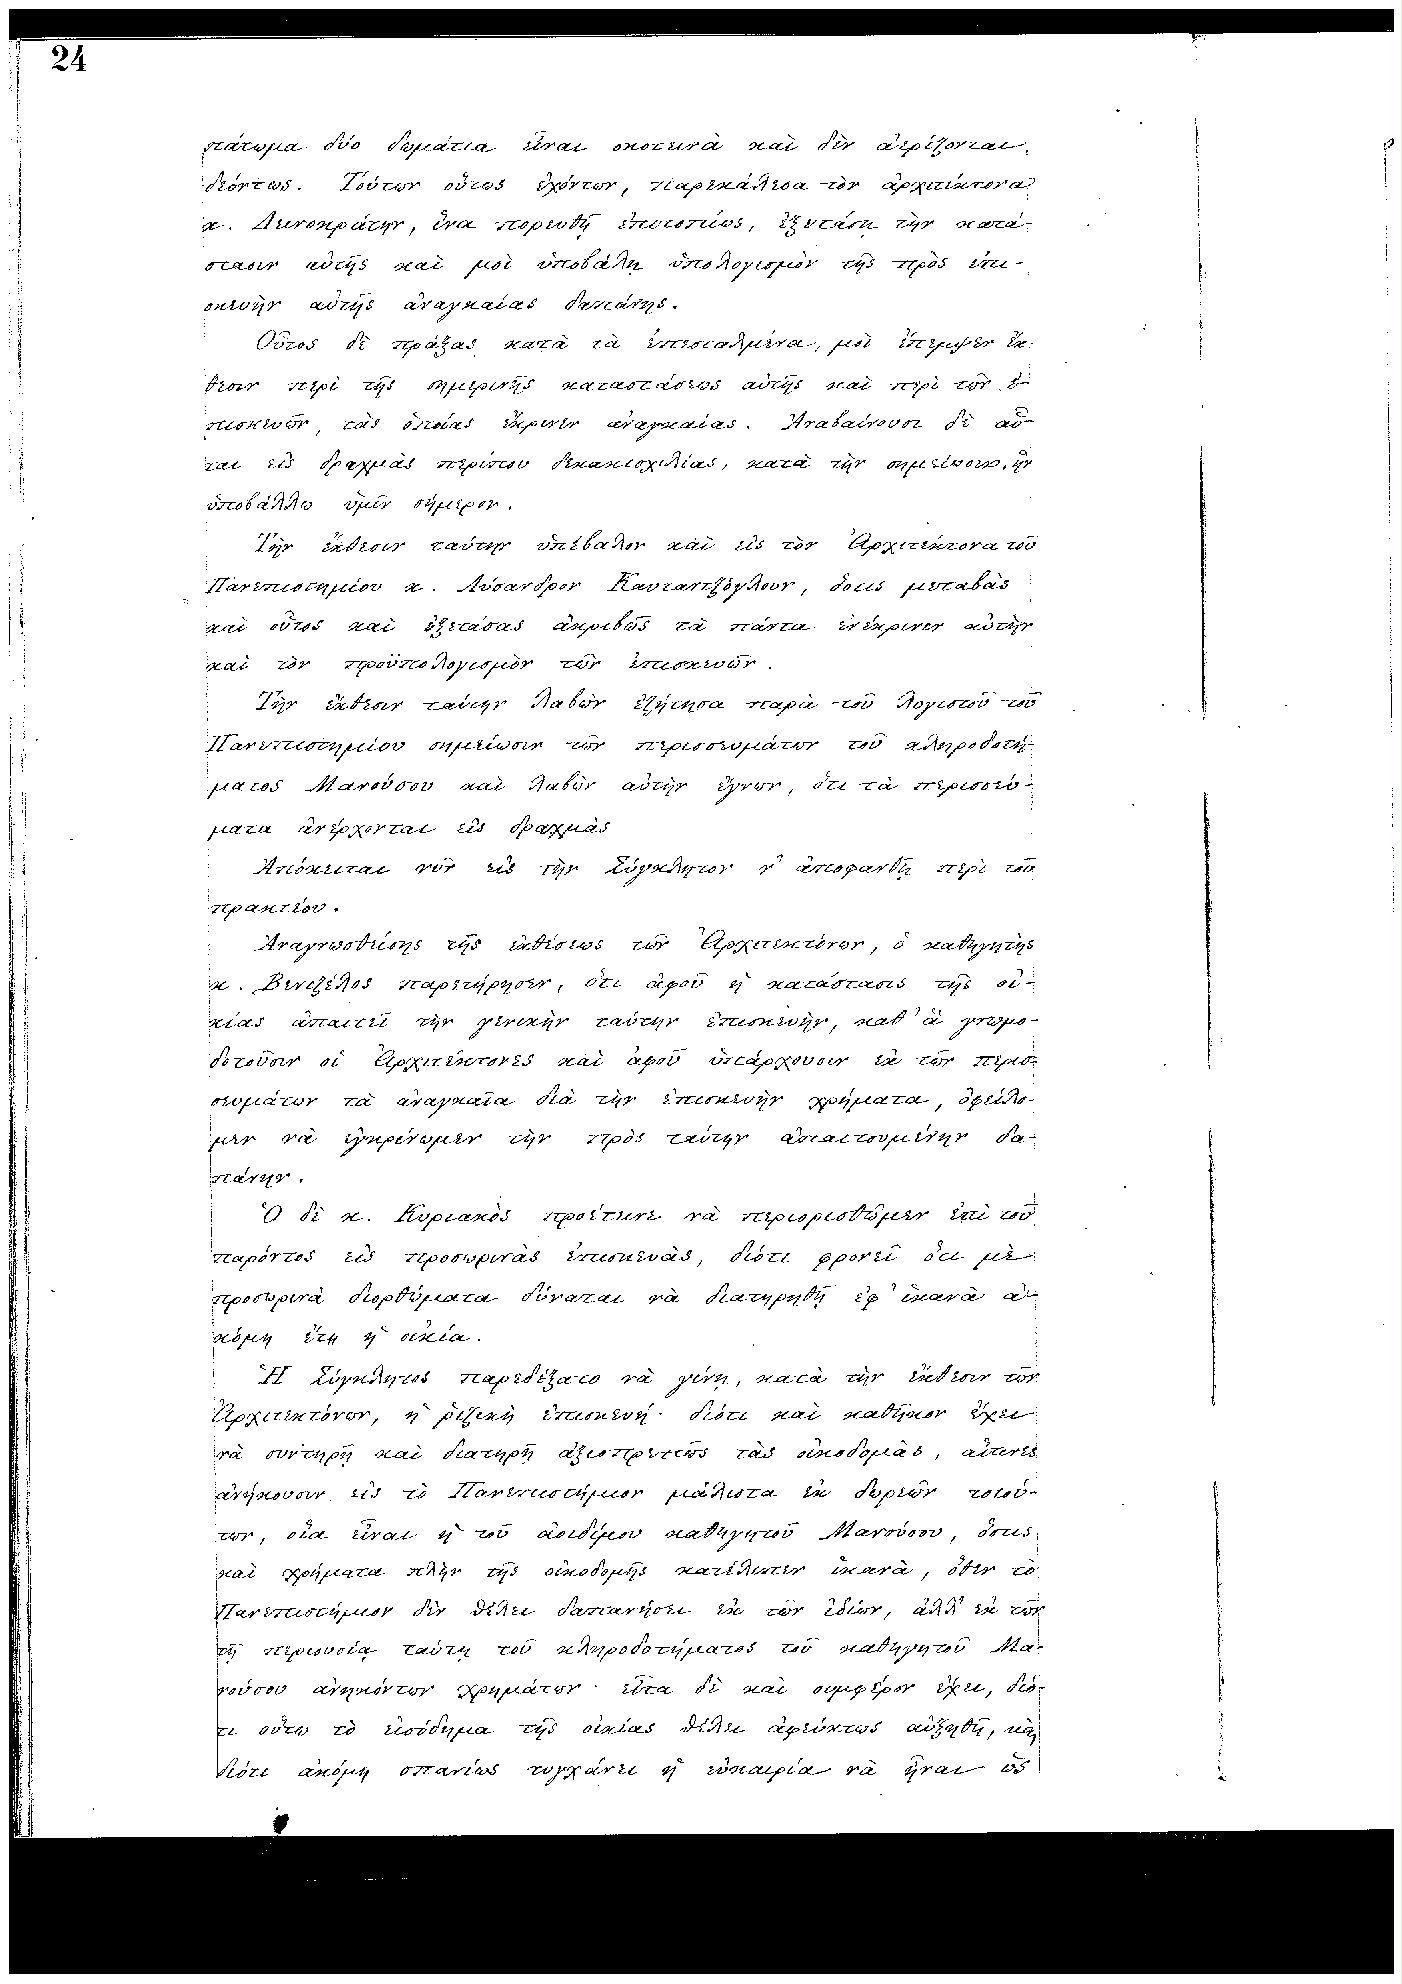 24
πάτωμα δύο δωμάτια εἶναι σκοτεινὰ καὶ δὲν ἀερίζονται
δεόντως. Τούτων οὕτως ἐχόντων, παρεκάλεσα τὸν ἀρχιτέκτονα
κ. Δεινοκράτην, ἵνα πορευθῇ ἐπιτοπίως, ἐξετάσῃ τὴν κατά-
στασιν αὐτῆς καὶ μοὶ ὑποβάλῃ ὑπολογισμὸν τῆς πρὸς ἐπι-
σκευὴν αὐτῆς ἀναγκαίας δαπάνης.
Οὗτος δὲ πράξας κατὰ τὰ ἐπεσταλμένα, μοὶ ἔπεμψεν ἔκ-
θεσιν περὶ τῆς σημερινῆς καταστάσεως αὐτῆς καὶ περὶ τῶν ἐ-
πισκευῶν, τὰς ὁποίας ἔκρινεν ἀναγκαίας. Ἀναβαίνουσι δὲ αὗ-
ται εἰς δραχμὰς περίπου δεκακισχιλίας, κατὰ τὴν σημείωσιν, ἣν
ὑποβάλλω ὑμῖν σήμερον.
Τὴν ἔκθεσιν ταύτην ὑπέβαλον καὶ εἰς τὸν Ἀρχιτέκτονα τοῦ
Πανεπιστημίου κ. Λύσανδρον Καυταντζόγλουν, ὅστις μεταβὰς
καὶ οὗτος καὶ ἐξετάσας ἀκριβῶς τὰ πάντα ἐνέκρινεν αὐτὴν
καὶ τὸν προϋπολογισμὸν τῶν ἐπισκευῶν.
Τὴν ἔκθεσιν ταύτην λαβὼν ἐζήτησα παρὰ τοῦ λογιστοῦ τοῦ
Πανεπιστημίου σημείωσιν τῶν περισσευμάτων τοῦ κληροδοτή-
ματος Μανούσου καὶ λαβὼν αὐτὴν ἔγνων, ὅτι τὰ περισσεύ-
ματα ἀνέρχονται εἰς δραχμὰς
Ἀπόκειται νῦν εἰς τὴν Σύγκλητον ν' ἀποφανθῇ περὶ τοῦ
πρακτέου.
Ἀναγνωσθείσης τῆς ἐκθέσεως τῶν Ἀρχιτεκτόνων, ὁ καθηγητὴς
κ. Βενιζέλος παρετήρησεν, ὅτι ἀφοῦ ἡ κατάστασις τῆς οἰ-
κίας ἀπαιτεῖ τὴν γενικὴν ταύτην ἐπισκευὴν, καθ' ἃ γνωμο-
δοτοῦσιν οἱ Ἀρχιτέκτονες καὶ ἀφοῦ ὑπάρχουσιν ἐκ τῶν περισ-
σευμάτων τὰ ἀναγκαῖα διὰ τὴν ἐπισκευὴν χρήματα, ὀφείλο-
μεν νὰ ἐγκρίνωμεν τὴν πρὸς ταύτην ἀπαιτουμένην δα-
πάνην.
Ὁ δὲ κ. Κυριακὸς προέτεινε νὰ περιορισθῶμεν ἐπὶ τοῦ
παρόντος εἰς προσωρινὰς ἐπισκευὰς, διότι φρονεῖ ὅτι μὲ
προσωρινὰ διορθώματα δύναται νὰ διατηρηθῇ ἐφ' ἱκανὰ ἀ-
κόμη ἔτη ἡ οἰκία.
Ἡ Σύγκλητος παρεδέξατο νὰ γίνῃ, κατὰ τὴν ἔκθεσιν τῶν
Ἀρχιτεκτόνων, ἡ ῥιζικὴ ἐπισκευή· διότι καὶ καθῆκον ἔχει
νὰ συντηρῇ καὶ διατηρῇ ἀξιοπρεπῶς τὰς οἰκοδομὰς, αἵτινες
ἀνήκουσιν εἰς τὸ Πανεπιστήμιον μάλιστα ἐκ δωρεῶν τοιού-
των, οἵα εἶναι ἡ τοῦ ἀοιδίμου καθηγητοῦ Μανούσου, ὅστις
καὶ χρήματα πλὴν τῆς οἰκοδομῆς κατέλιπεν ἱκανὰ, ὅθεν τὸ
Πανεπιστήμιον δὲν θέλει δαπανήσει ἐκ τῶν ἰδίων, ἀλλ' ἐκ τῶν
τῇ περιουσίᾳ ταύτῃ τοῦ κληροδοτήματος τοῦ καθηγητοῦ Μα-
νούσου ἀνηκόντων χρημάτων· εἶτα δὲ καὶ συμφέρον ἔχει, διό-
τι οὕτω τὸ εἰσόδημα τῆς οἰκίας θέλει ἀφεύκτως αὐξηθῆ, καὶ
διότι ἀκόμη σπανίως τυγχάνει ἡ εὐκαιρία νὰ ᾖναι ὡς